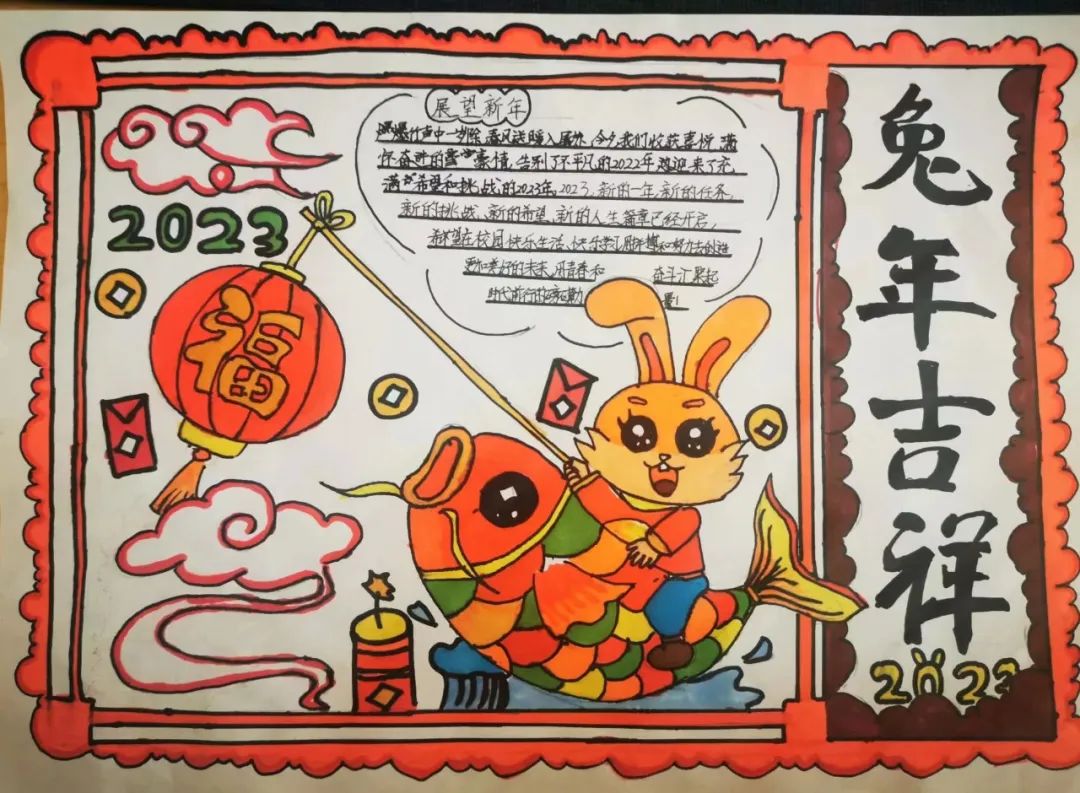 展望新年
爆竹声中一岁除,春风送暖入屠苏,今夕我们收获喜悦,满
怀奋进的豪情,告别了不平凡的2022年,迎来了充
满希望和挑战的2023年,2023,新的一年,新的任务,
新的挑战、新的希望、新的人生篇章已经开启,
希望在校园快乐生活、快乐学习,用拼搏和努力去创造
更加美好的未来,用青春和 奋斗汇聚起
时代前行的 量!
2023
福
兔年吉祥
2023